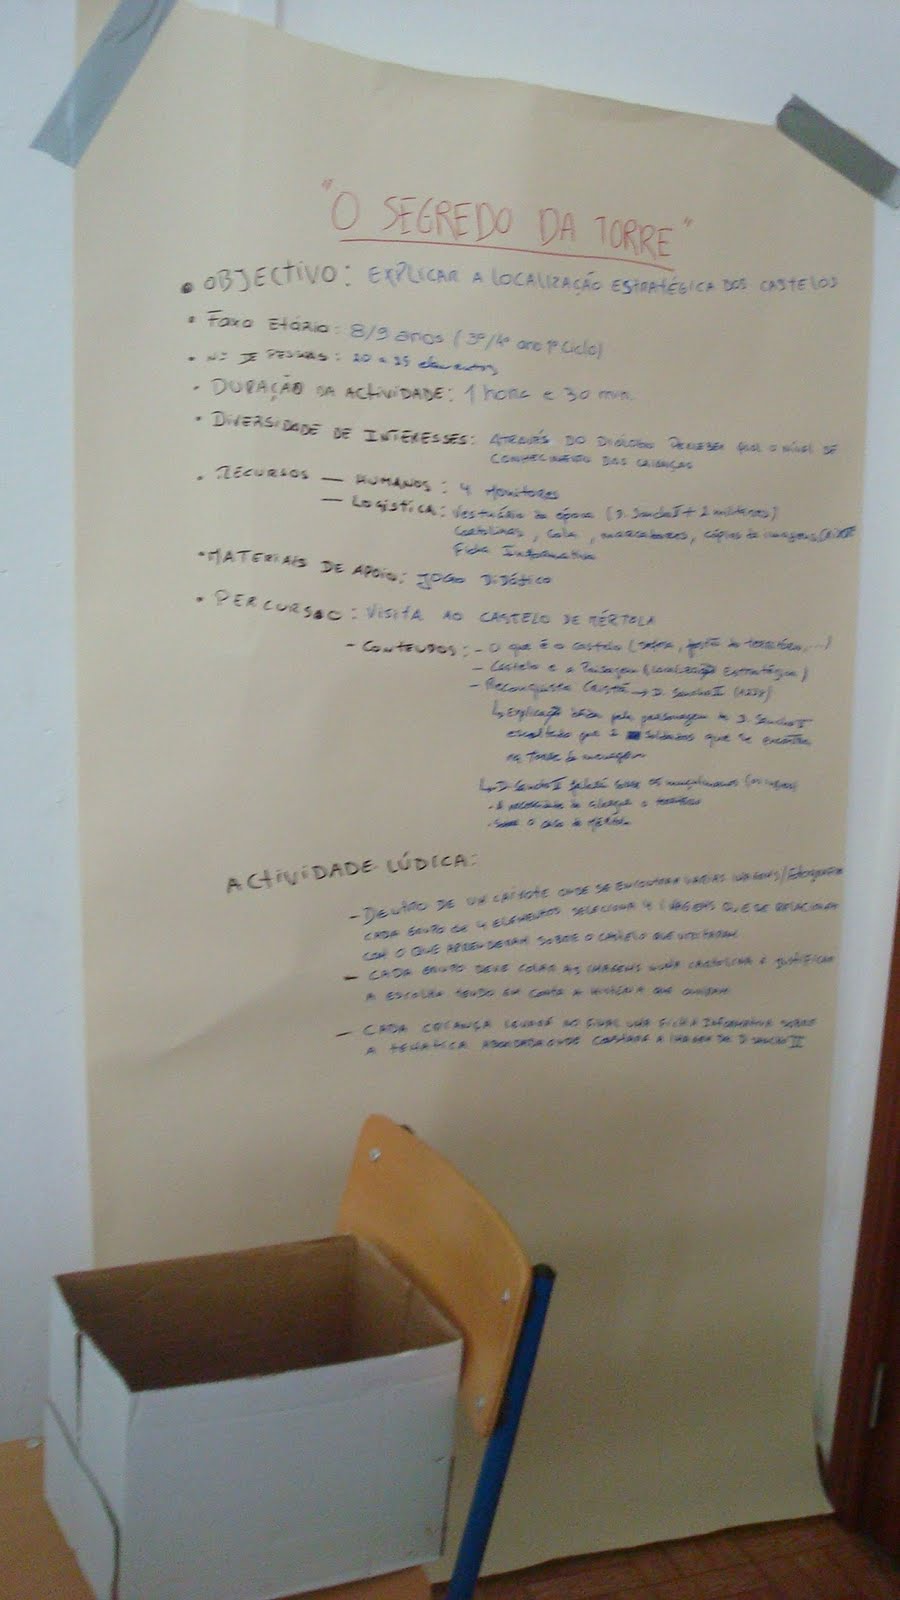 "O SEGREDO DA TORRE"
• OBJECTIVO: EXPLICAR A LOCALIZAÇÃO ESTRATÉGICA DOS CASTELOS
• Faxa Etária: 8/9 anos (3º/4º ano 1º Ciclo)
• Nº DE PESSOAS: 20 a 25 elementos
• DURAÇÃO DA ACTIVIDADE: 1 hora e 30 min.
• DIVERSIDADE DE INTERESSES: ATRAVÉS DO DIÁLOGO PERCEBER QUAL O NÍVEL DE
CONHECIMENTO DAS CRIANÇAS
• RECURSOS — HUMANOS: 4 Monitores
— LOGÍSTICA: Vestuário da época (D. Sancho II + 2 militares)
Cartolinas, Cola, marcadores, cópias de imagens, CAIXOTE
Ficha Informativa
• MATERIAIS DE APOIO: JOGO DIDÁTICO
• PERCURSO: VISITA AO CASTELO DE MÉRTOLA
- CONTEUDOS: - O que é o castelo (defesa, gestão do território, ...)
- Castelo e a Paisagem (Localização Estratégica)
- Reconquista Cristã → D. Sancho II (1238)
↳ Explicação pela personagem de D. Sancho II
escoltado por 2 Soldados que se encontra
na Torre de menagem
↳ D. Sancho II falará sobre os muçulmanos
- A necessidade de alargar o território
- Sobre o caso de MÉRTOLA
ACTIVIDADE LÚDICA:
- DENTRO DE UM CAIXOTE ONDE SE ENCONTRAM VÁRIAS IMAGENS/FOTOGRAFIA
CADA GRUPO DE 4 ELEMENTOS SELECIONA 4 IMAGENS QUE SE RELACIONAM
COM O QUE APRENDERAM SOBRE O CASTELO QUE VISITARAM
— CADA GRUPO DEVE COLAR AS IMAGENS NUMA CARTOLINA E JUSTIFICAR
A ESCOLHA TENDO EM CONTA A HISTÓRIA QUE OUVIRAM
— CADA CRIANÇA LEVARÁ NO FINAL UMA FICHA INFORMATIVA SOBRE
A TEMÁTICA ABORDADA ONDE CONSTARÁ A IMAGEM DE D. SANCHO II